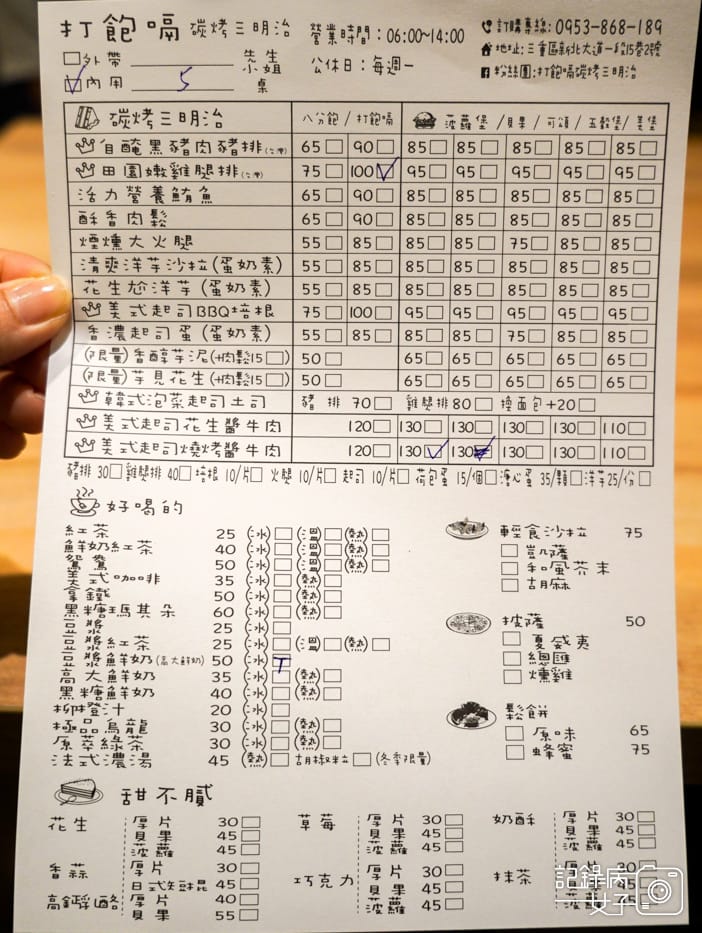 打飽嗝 碳烤三明治
營業時間：06:00~14:00
公休日：每週一
訂購專線：0953-868-189
地址：三重區新北大道一段15巷2號
粉絲團：打飽嗝碳烤三明治
□外帶 先生 小姐
□內用 5 桌
碳烤三明治 八分飽 / 打飽嗝 菠蘿堡 / 貝果 / 可頌 / 五穀堡 / 美堡
自醃黑豬肉豬排 65□ 90□ 85□ 85□ 85□ 85□ 85□
田園嫩雞腿排 75□ 100□ 95□ 95□ 95□ 95□ 95□
活力營養鮪魚 65□ 90□ 85□ 85□ 85□ 85□ 85□
酥香肉鬆 65□ 90□ 85□ 85□ 85□ 85□ 85□
煙燻大火腿 55□ 85□ 85□ 85□ 75□ 85□ 85□
清爽洋芋沙拉(蛋奶素) 55□ 85□ 85□ 85□ 85□ 85□ 85□
花生尬洋芋(蛋奶素) 55□ 85□ 85□ 85□ 85□ 85□ 85□
美式起司BBQ培根 75□ 100□ 95□ 95□ 95□ 95□ 95□
香濃起司蛋(蛋奶素) 55□ 85□ 85□ 85□ 75□ 85□ 85□
(限量)香醇芋泥(+肉鬆15□) 50□ 65□ 65□ 65□ 65□ 65□
(限量)芋見花生(+肉鬆15□) 50□ 65□ 65□ 65□ 65□ 65□
韓式泡菜起司土司 豬排 70□ 雞腿排80□ 換麵包+20□
美式起司花生醬牛肉 120□ 130□ 130□ 130□ 130□ 110□
美式起司燒烤醬牛肉 120□ 130□ 130□ 130□ 130□ 110□
豬排 30□ 雞腿排 40□ 培根 10/片□ 火腿 10/片□ 起司 10/片□ 荷包蛋 15/個□ 溏心蛋 35/顆□ 洋芋25/份□
好喝的
紅茶 25 (冰)□ (溫)□ (熱)□
鮮奶紅茶 40 (冰)□ (溫)□ (熱)□
鴛鴦 50 (冰)□ (溫)□ (熱)□
美式咖啡 35 (冰)□ (熱)□
拿鐵 50 (冰)□ (熱)□
黑糖瑪其朵 60 (冰)□ (熱)□
豆漿 25 (冰)□
豆漿紅茶 25 (冰)□ (溫)□ (熱)□
豆漿鮮奶(高大鮮奶) 50 (冰)□
高大鮮奶 35 (冰)□ (熱)□
黑糖鮮奶 40 (冰)□ (熱)□
柳橙汁 20 (冰)□
極品烏龍 30 (冰)□ (熱)□
原萃綠茶 30 (冰)□ (熱)□
法式濃湯 45 (熱)□ 胡椒粒□ (冬季限量)
輕食沙拉 75
□ 凱薩
□ 和風芥末
□ 胡麻
披薩 50
□ 夏威夷
□ 總匯
□ 燻雞
鬆餅
□ 原味 65
□ 蜂蜜 75
甜不膩
花生 厚片 30□
貝果 45□
菠蘿 45□
香蒜 厚片 30□
日式生豆棍 45□
高鈣乳酪 厚片 40□
貝果 55□
草莓 厚片 30□
貝果 45□
菠蘿 45□
巧克力 厚片 30□
貝果 45□
菠蘿 45□
奶酥 厚片 30□
貝果 45□
菠蘿 45□
抹茶 厚片 30□
貝果 45□
菠蘿 45□
記錄病女子